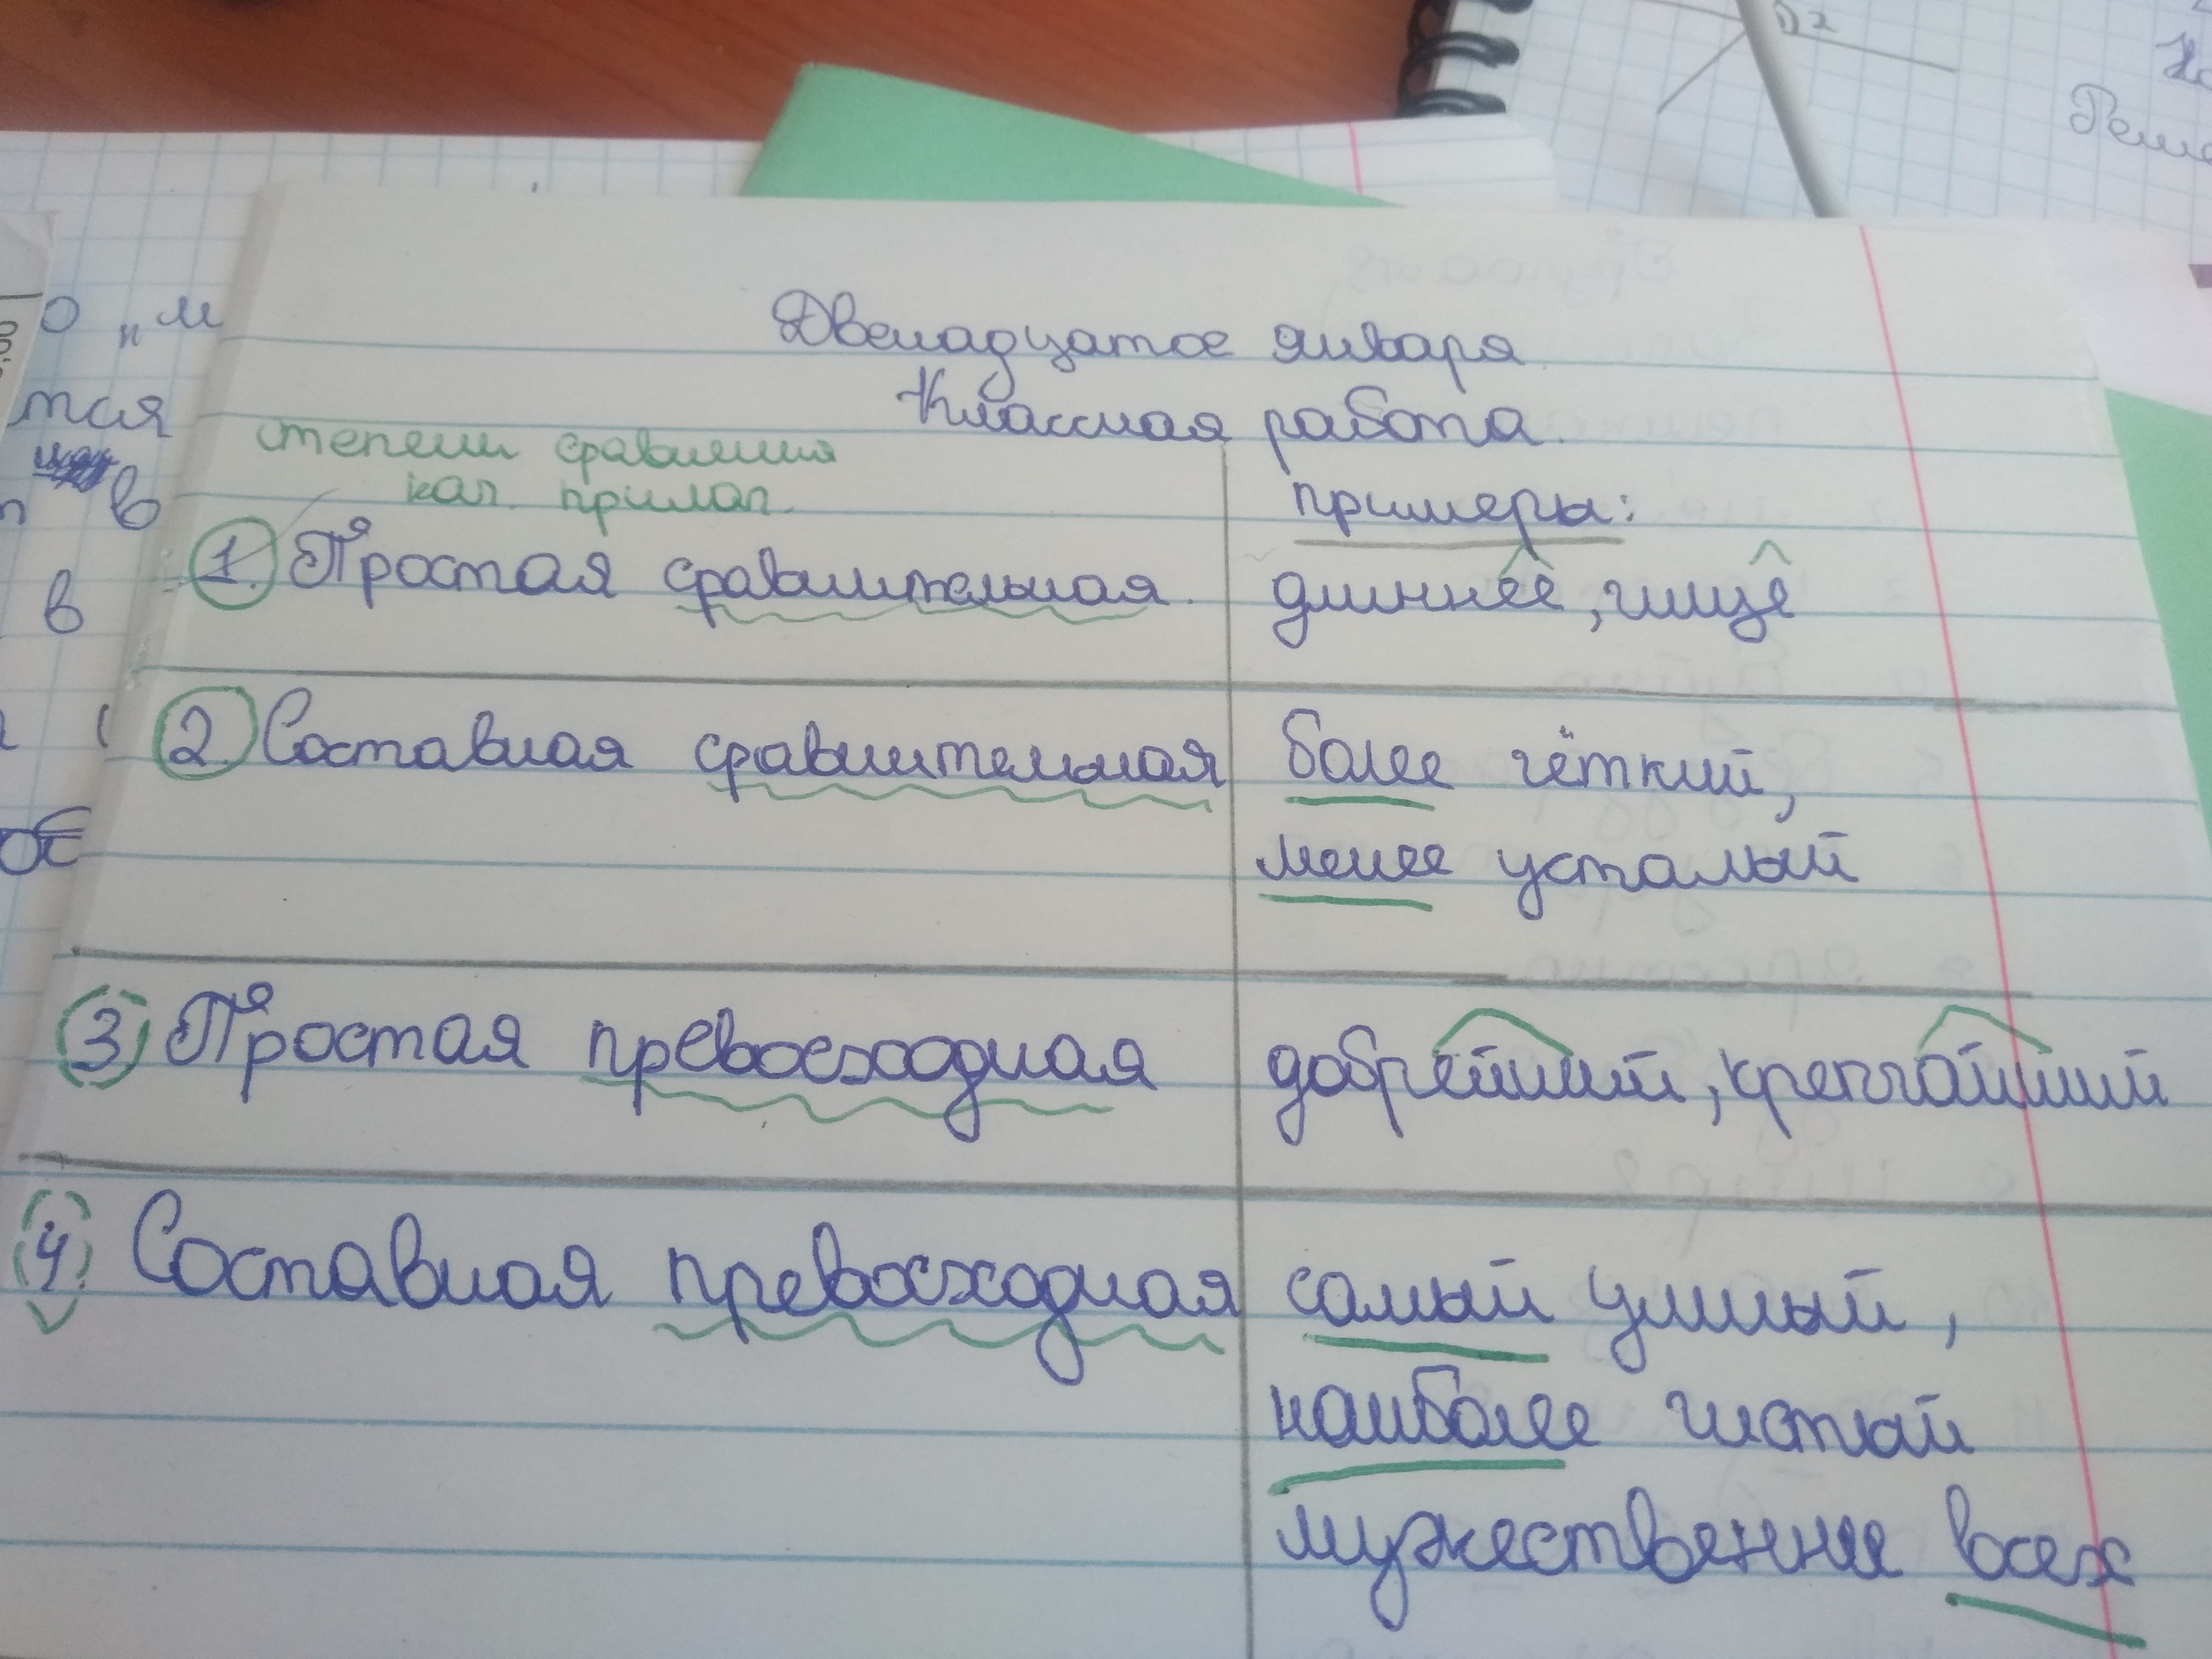 Двенадцатое января
Классная работа.
степени сравнения
кач. прилаг.
примеры:
1. Простая сравнительная.
длиннее, чище
2. Составная сравнительная
более чёткий,
менее усталый
3. Простая превосходная
добрейший, крепчайший
4. Составная превосходная
самый умный,
наиболее чистый
мужественнее всех